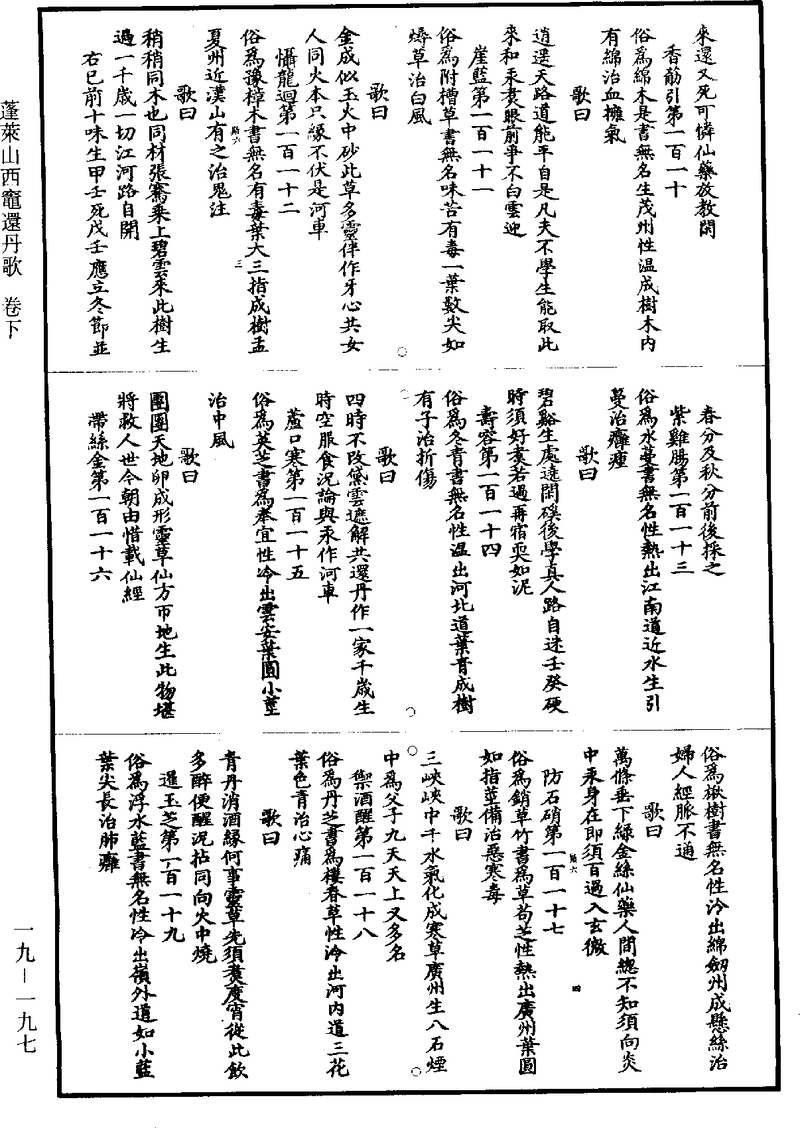 來還又死可憐仙藥放教閑
香筋引第一百一十
俗爲綿木是書無名生茂州性温成樹木内
有綿治血擁氣
歌曰
逍遥天路道能平自是凡夫不學生能取此
來和汞煑眼前爭不白雲迎
崖藍第一百一十一
俗爲附槽草書無名味苦有毒一葉數尖如
燖草治白風
歌曰
金成似玉火中砂此草多靈伴作牙心共女
人同火本只緣不伏是河車
懾龍迴第一百一十二
俗爲豫樟木書無名有毒葉大三指成樹孟
夏州近漢山有之治鬼注
歌曰
稍稍同木也同材張騫乘上碧雲來此樹生
過一千歲一切江河路自開
右已前十味生甲壬死戊壬應立冬節並
春分及秋分前後採之
紫雞腸第一百一十三
俗爲水蔓書無名性熱出江南道近水生引
蔓治癰瘇
歌曰
碧谿生處遠閑磎後學真人路自迷壬癸硬
時須好煑若過再宿耎如泥
壽容第一百一十四
俗爲冬青書無名性温出河北道葉青成樹
有子治折傷
歌曰
四時不改黛雲遮解共還丹作一家千歲生
時空服食況論與汞作河車
蘆口寒第一百一十五
俗爲英芝書爲奉宜性冷出雲安葉圓小莖
治中風
歌曰
團團天地卵成形靈草仙方帀地生此物堪
將救人世今朝由惜載仙經
帶絲金第一百一十六
俗爲楸樹書無名性冷出綿劒州成懸絲治
婦人經脈不通
歌曰
萬條垂下緑金絲仙藥人間總不知須向炎
中汞身在即須百過入玄微
防石硝第一百一十七
俗爲銷草竹書爲草茍芝性熱出廣州葉圓
如指莖備治惡寒毒
歌曰
三峽峽中千水氣化成寒草廣州生八石煙
中爲父子九天天上又多名
禦酒醒第一百一十八
俗爲丹芝書爲樓春草性冷出河内道三花
葉色青治心痛
歌曰
青丹消酒緣何事靈草先須煑度宵從此飲
多醉便醒況拈同向火中燒
暹玉芝第一百一十九
俗爲浮水藍書無名性冷出嶺外道如小藍
葉尖長治肺癰
蓬萊山西竈還丹歌 卷下
一九－一九七